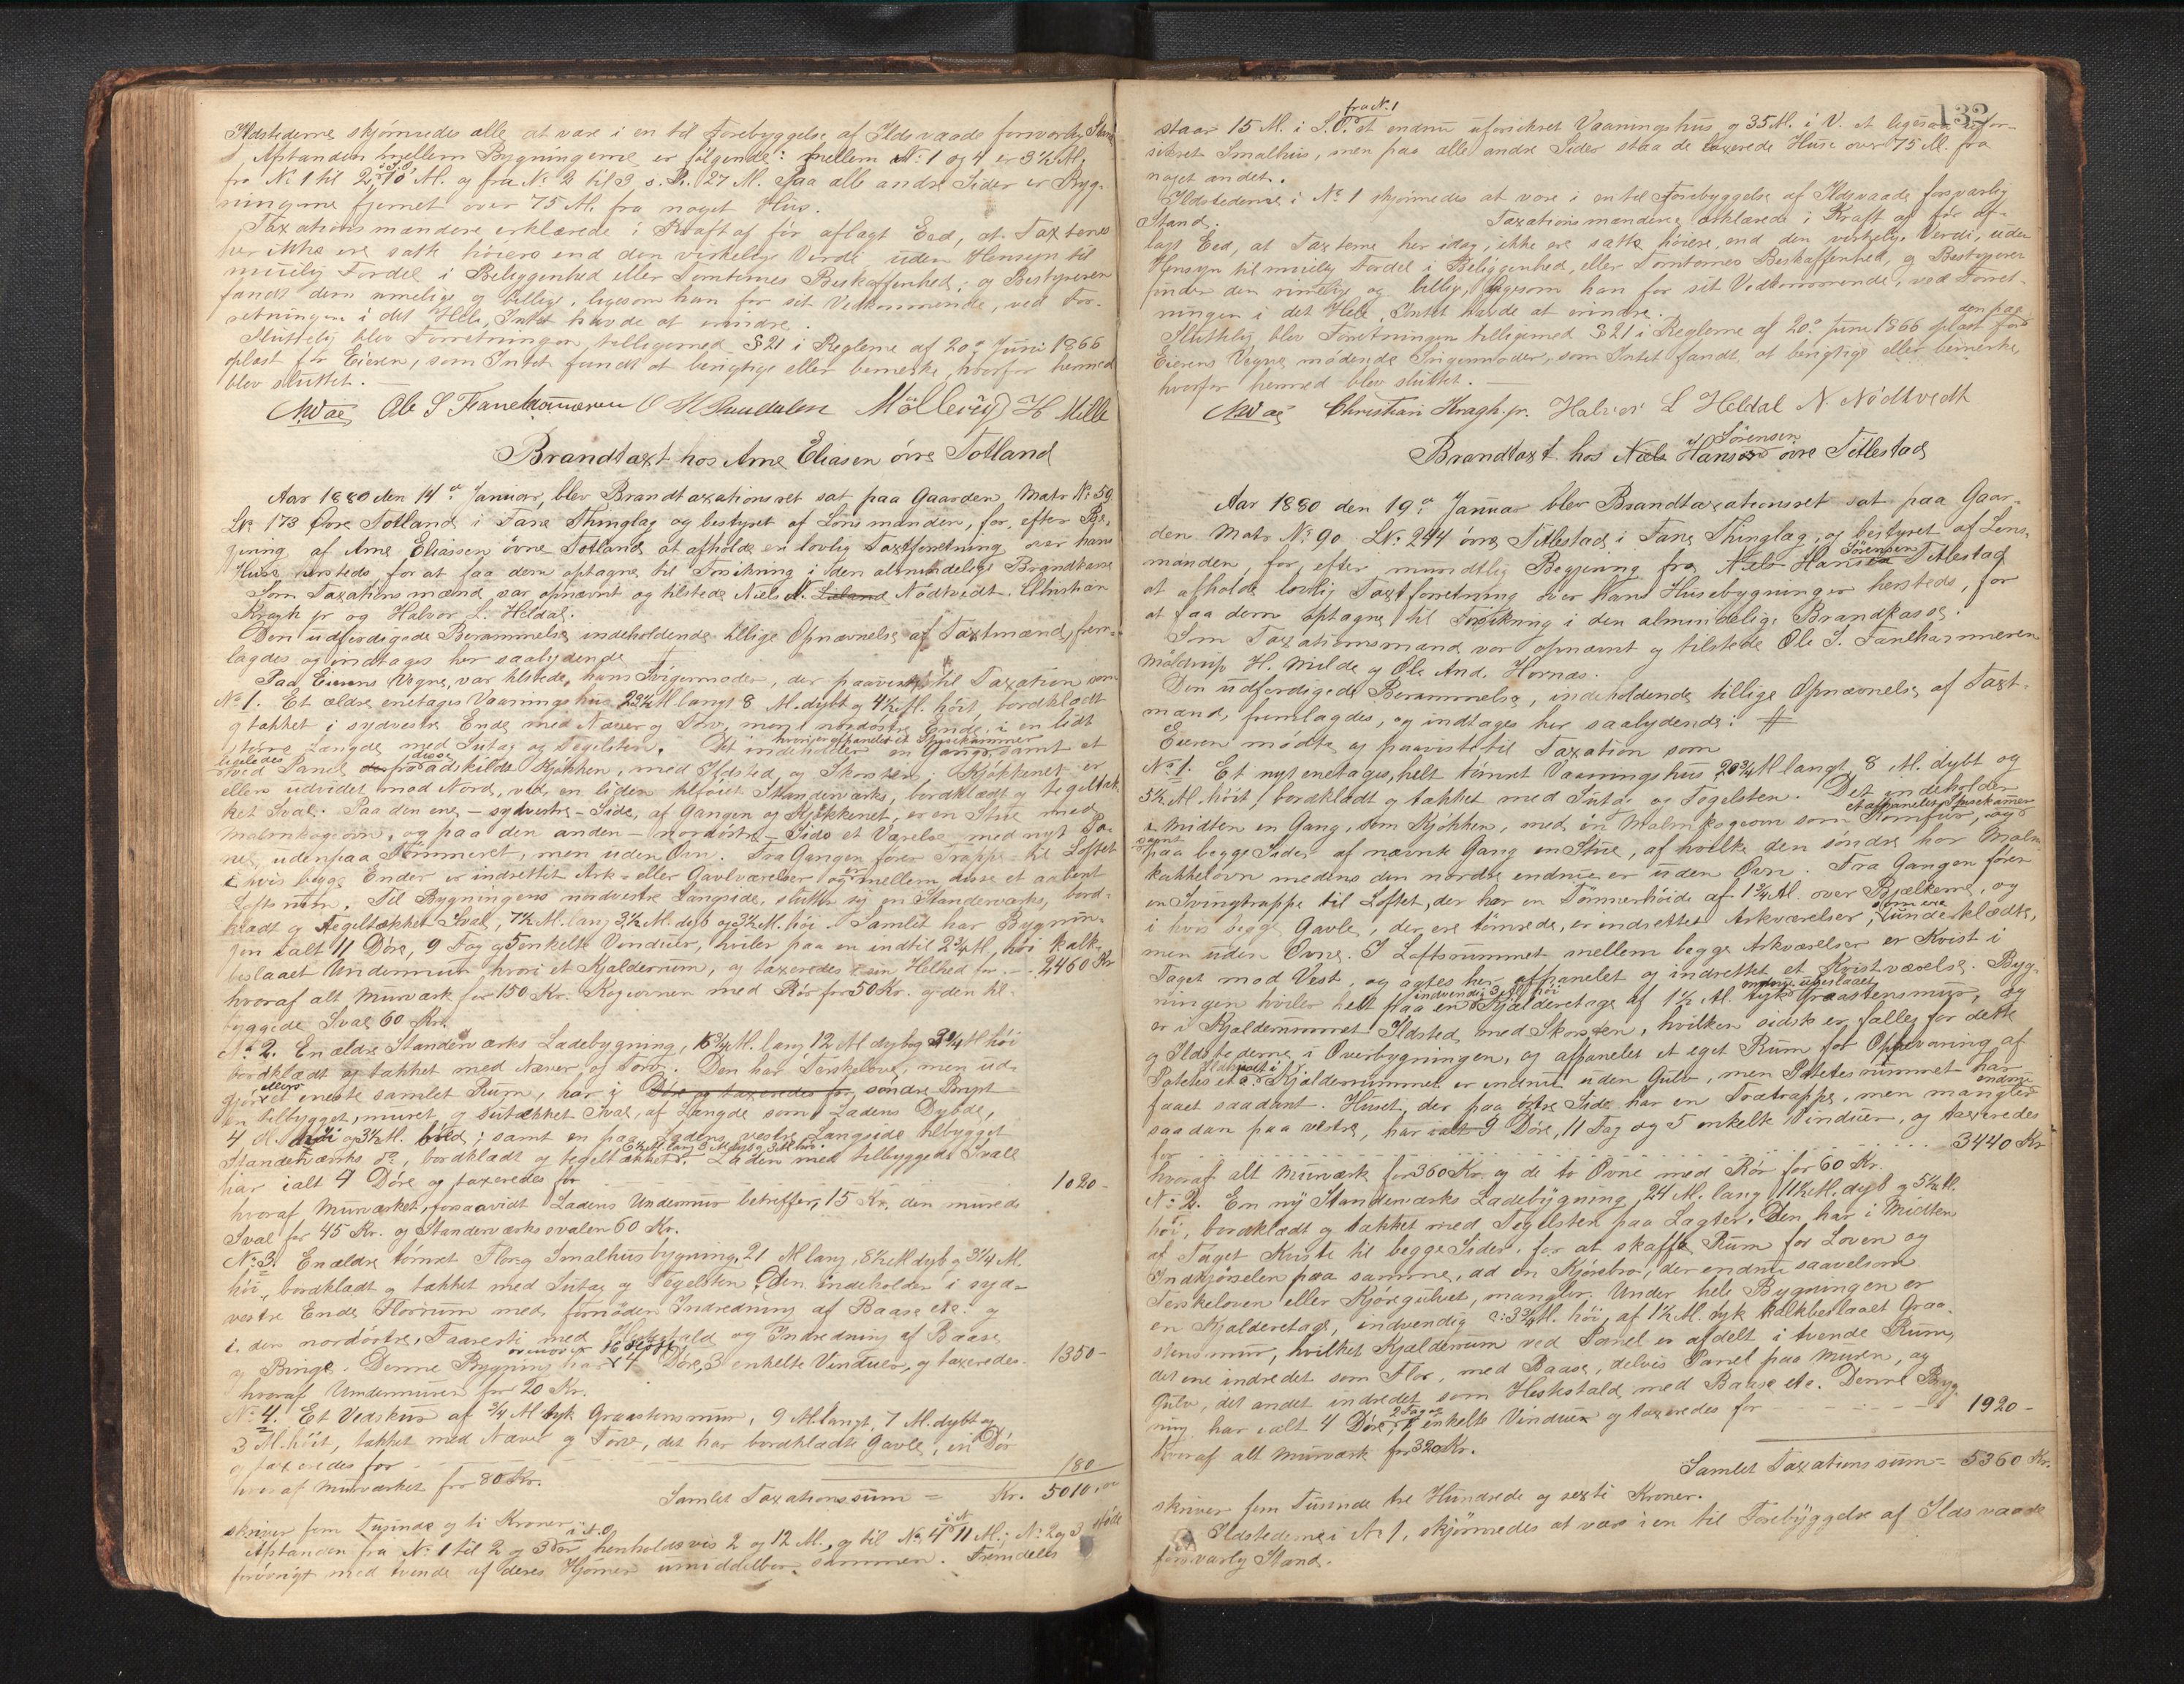 Ildstederne skjønnedes alle at være i en til Forebyggelse af Ildsvaade forsvarlig Stand
Afstanden mellem Bygningerne er følgende: mellem N: 1 og 4 er 3½ M,
fra N: 1 til 2 i S.O. 10 M. og fra N: 2 til 3 27 M. Paa alle andre Sider er Byg-
ningerne fjernet over 75 M. fra noget Hus.
Taxationsmændene erklærede i Kraft af før aflagt Eed, at Taxterne
her ikke ere satte høiere end den virkelige Verdi, uden Hensyn til
muelig Fordel i Beliggenhed eller Tomternes Beskaffenhed; og Bestyreren
fandt dem rimelige og billige, ligesom han for sit Vedkommende, ved For-
retningen i det Hele, Intet havde at erindre.
Sluttelig blev Forretningen tilligemed § 21 i Reglerne af 20de Juni 1866
oplæst for Eieren, som Intet fandt at berigtige eller bemerke, hvorfor hermed
blev sluttet. —
Ole S Fanehammeren Mölleruy H Milde
Brandtaxt hos Arne Eliasen övre Totland
Aar 1880 den 14de Januar, blev Brandtaxationsret sat paa Gaarden Matr N: 59
L№ 173 Övre Totland i Fane Thinglag og bestyret af Lensmanden, for, efter Be-
gjæring af Arne Eliassen övre Totland at afholde en lovlig Taxtforretning over hans
Huse hersteds for at faa dem optagne til Forsikring i den almindelige Brandkasse
Som Taxationsmænd var opnævnt og tilstede Niels N. Nödtvedt. Christian
Kragh jr og Halvor L. Heldal.
Den udferdigede Berammelse indeholdende tillige Opnævnelse af Taxtmænd, frem-
lagdes og indtages her saalydende
Paa Eierens Vegne, var tilstede, hans Svigermoder, der paaviste til Taxation som
N: 1. Et ældre enetages Vaaningshus 23½ M langt 8 M. dybt og 4½ M. höit, bordklædt
og tækket i sydvestre Ende med Næver og Torv, men i nordöstre Ende i en lidt
större Længde med Sutag og Tegelsten. Det indeholder en Gang, hvori er afpanelet et Spisekammer samt et
ligeledes ved Panel fra disse adskilde Kjökken, med Ildsted og Skorsten. Kjökkenet er
ellers udvidet mod Nord, ved en liden tilföiet Standerværks, bordklædt og tegeltæk-
ket Sval. Paa den ene – sydvestre – Side, af Gangen og Kjökkenet, er en Stue med
Malmkogeovn, og paa den anden – nordöstre – Side et Værelse med nyt Pa-
nel udenpaa Tömmeret, men uden Ovn. Fra Gangen förer Trappe til Loftet
i hvis begge Ender er indrettet Ark- eller Gavlværelser og er mellem disse et aabent
Loftsrum. Til Bygningens nordvestre Langside, slutter sig en Standerværks, bord-
klædt og tegeltækket Sval, 7½ M. lang 3½ M. dyb og 3½ M. höi. Samlet har Bygnin-
gen ialt 11 Döre, 9 Fag og 5 enkelte Vinduer, hviler paa en indtil 2¾ M. höi kalk-
beslaaet Undermur hvori et Kjælderrum, og taxeredes i sin Helhed for — 2460 Kr
hvoraf alt Murværk for 150 Kr. Kogeovnen med Rör for 50 Kr. og den til-
byggede Sval 60 Kr.
N: 2. En ældre Standerværks Ladebygning, 16¾ M. lang 12 M dyb og 3¾ M höi
bordklædt og tækket med Næver og Torv. Den har Terskelove, men ud-
gjör ellers et eneste samlet Rum, har i söndre Bryst
en tilbygget, muret, og sutækket Sval, af Længde som Ladens Dybde,
4 M. höi og 3½ M. bred; samt en paa Ladens vestre Langside tilbygget
Standerværks do, bordklædt og tegeltækket, 6½ M. lang 3 M. dyb og 3 M. höi. Laden med tilbyggede Svale
har ialt 4 Döre og taxeredes for 1020 -
hvoraf Murværket, forsaavidt Ladens Undermur betreffer, 15 Kr. den murede
Sval for 45 Kr. og Standerværkssvalen 60 Kr.
N: 3. En ældre tömret Flor og Smalhusbygning, 21 M lang, 8½ M dyb og 3¼ M.
höi, bordklædt og tækket med Sutag og Tegelsten. Den indeholder i syd-
vestre Ende Florrum med fornöden Indredning af Baase etc. og
i den nordöstre, Faaresti med Hestestald og Indredning af Baase
og Binge. Denne Bygning har 4 Döre, 3 enkelte Vinduer, og taxeredes 1350 -
hvoraf Undermuren for 20 Kr.
N: 4. Et Vedskur af ¾ M tyk Graastensmur, 9 M. langt, 7 M. dybt og
3 M. höit, tækket med Næver og Torv, det har bordklædte Gavle, en Dör
og taxeredes for 180
hvoraf Murværket for 80 Kr.
Samlet Taxationssum = Kr. 5010,00
skriver fem Tusinde og ti Kroner.
Afstanden fra N: 1 til 2 og 3 er i N.O. henholdsvis 2 og 12 M., og til N: 4 i N. 11 M.; N: 2 og 3 stöde
forövrigt med tvende af deres Hjörner umiddelbar sammen. Fremdeles
132
staar 15 M. i S.O. fra N. 1 et endnu uforsikret Vaaningshus og 35 M. i V. et ligesaa ufor-
sikret Smalhus, men paa alle andre Sider staa de taxerede Huse over 75 M. fra
noget andet.
Ildstederne i N: 1 skjønnedes at være i en til Forebyggelse af Ildsvaade forsvarlig
Stand. Taxationsmændene erklærede i Kraft af før af-
lagt Eed, at Taxterne her idag, ikke ere satte höiere, end den virkelige Verdi, uden
Hensyn til muelig Fordel i Beliggenhed, eller Tomternes Beskaffenhed, og Bestyreren
finder den rimelig og billig, ligesom han for sit Vedkommende, ved Forret-
ningen i det Hele, Intet havde at erindre.
Sluttelig blev Forretningen tilligemed § 21 i Reglerne af 20de Juni 1866 oplæst for den paa
Eierens Vegne mödende Svigermoder, som Intet fandt at berigtige eller bemerke,
hvorfor hermed blev sluttet. —
Christian Kragh jr. Halvor L Heldal N. Nödtvedt
Brandtaxt hos Niels Hansen Sörensen övre Titlestad
Aar 1880 den 19de Januar blev Brandtaxationsret sat paa Gaar-
den Matr N: 90 L№: 244 övre Titlestad i Fane Thinglag, og bestyret af Lens-
manden, for, efter mundtlig Begjæring fra Niels Hansen Sörensen Titlestad
at afholde lovlig Taxtforretning over hans Husebygninger hersteds, for
at faa dem optagne til Forsikring i den almindelige Brandkasse.
Som Taxationsmænd var opnævnt og tilstede Ole S. Fanehammeren
Möldrup H. Milde og Ole And. Hornæs.
Den udferdigede Berammelse, indeholdende tillige Opnævnelse af Taxt-
mænd, fremlagdes, og indtages her saalydende: #
Eieren mödte og paaviste til Taxation som
N: 1. Et nyt enetages, helt tömret Vaaningshus 20¾ M langt, 8 M. dybt og
5½ M höit, bordklædt og tækket med Sutag og Tegelsten. Det indeholder
i Midten en Gang, som Kjökken, med en Malmkogeovn som Komfur, og et afpanelet Spisekammer
samt paa begge Sider af nævnte Gang en Stue, af hvilke den söndre har Malm
kakkelovn medens den nordre endnu er uden Ovn. Fra Gangen förer
en Svingtrappe til Loftet, der har en Tömmerhöide af 1¾ M. over Bjælkerne, og
i hvis begge Gavle, der ere tömrede, er indrettet Arkværelser, som ere underklædte,
men uden Ovne. I Loftsrummet mellem begge Arkværelser er Kvist i
Taget mod Vest, og agtes her afpanelet og indrettet et Kvistværelse. Byg-
ningen hviler helt paa en indvendig 3½ M höi Kjælderetage af 1½ M. tyk endnu ubeslaaet Graastensmur, og
er i Kjælderrummet Ildsted med Skorsten, hvilken sidste er fælles for dette
og Ildstederne i Overbygningen, og afpanelet et eget Rum for Opbevaring af
Potetes etc. Kjælderrummet er endnu uden Gulv, men Potetesrummet har
faaet saadant. Huset, der paa östre Side har en Trætrappe, men mangler endnu
saadan paa vestre, har ialt 9 Döre, 11 Fag og 5 enkelte Vinduer, og taxeredes
for 3440 Kr
hvoraf alt Murværk for 360 Kr. og de to Ovne med Rör for 60 Kr.
N: 2. En ny Standerværks Ladebygning, 24 M. lang 11½ M. dyb og 5½ M.
höi, bordklædt og tækket med Tegelsten paa Lægter. Den har i Midten
af Taget Kviste til begge Sider, for at skaffe Rum for Loven og
Indkjörselen paa samme, ad en Kjörebro, der endnu saavelsom
Terskeloven eller Kjöregulvet, mangler. Under hele Bygningen er
en Kjælderetage, indvendig c: 3¾ M. höi, af 1½ M. tyk kalkbeslaaet Graa-
stensmur, hvilket Kjælderrum ved Panel er afdelt i tvende Rum,
det ene indredet som Flor, med Baase, delvis Panel paa Muren, og
Gulv, det andet indredet som Hestestald med Baase etc. Denne Byg-
ning har ialt 4 Döre, 2 Fag og enkelte Vinduer og taxeredes for 1920 -
hvoraf alt Murværk for 320 Kr.
Samlet Taxationssum = 5360 Kr.
skriver fem Tusinde tre Hundrede og sexti Kroner.
Ildstederne i N: 1, skjönnedes at være i en til Forebyggelse af Ildsvaade
forsvarlig Stand.